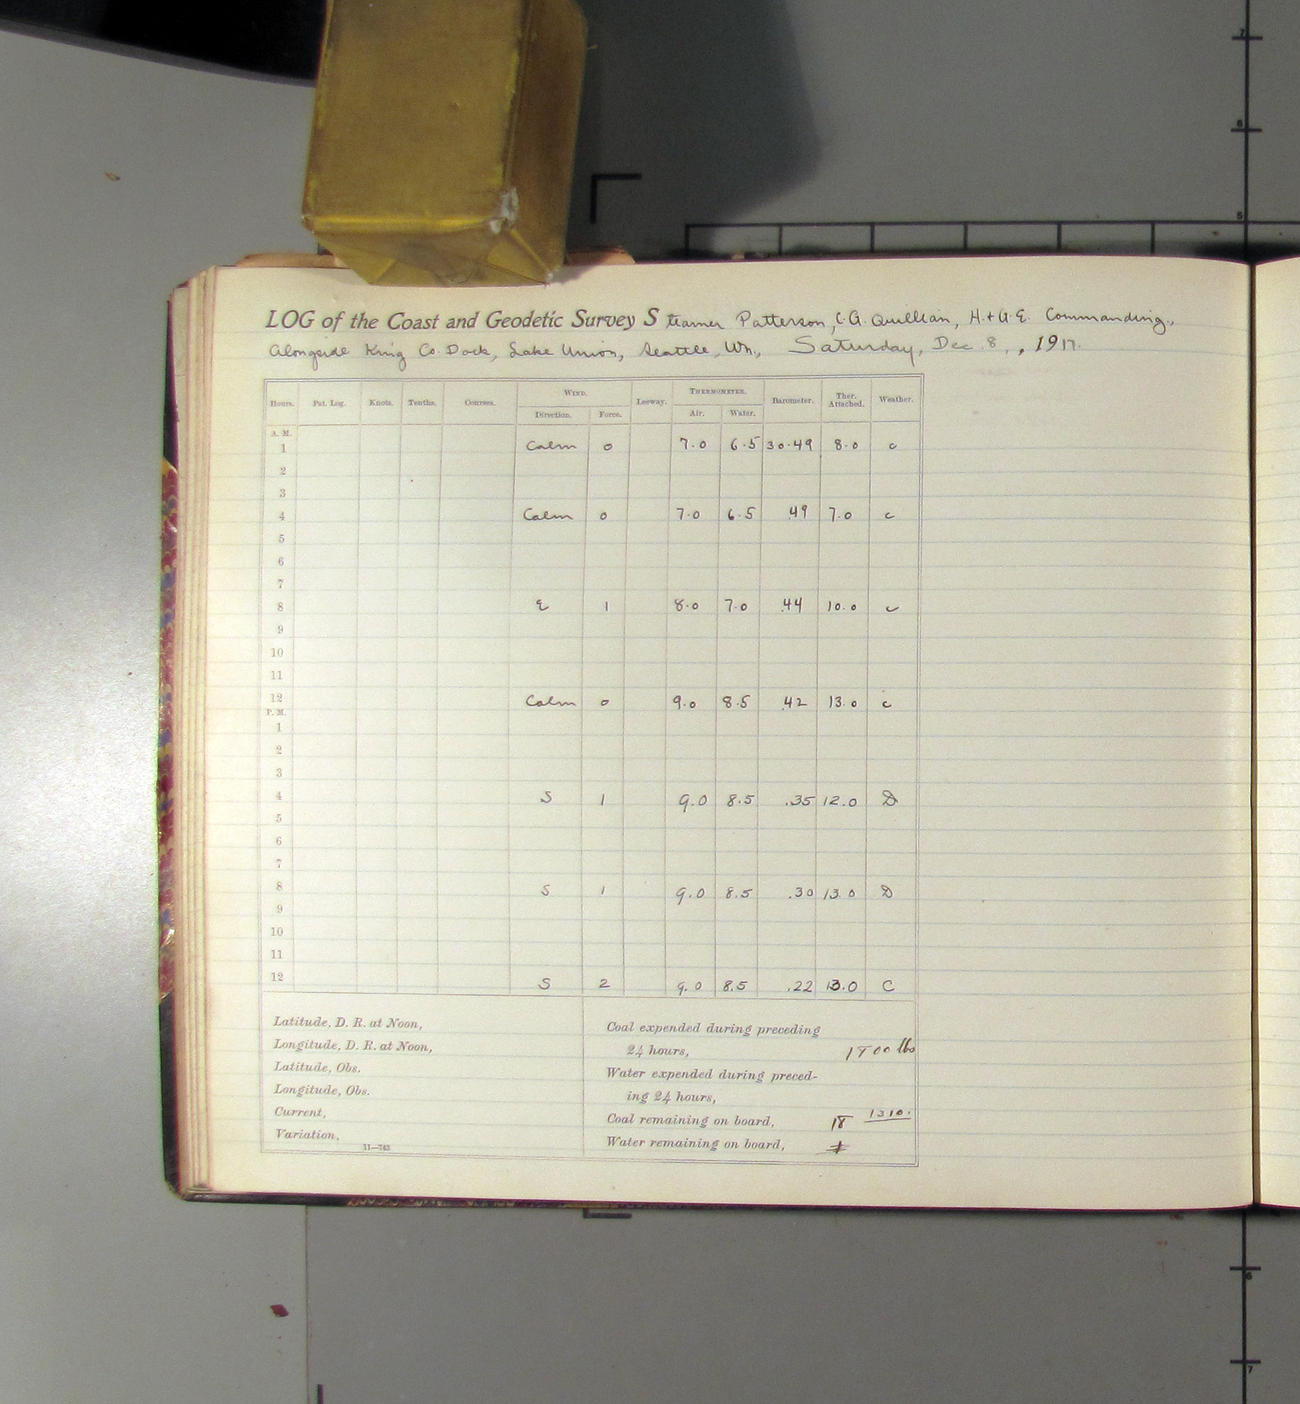 LOG of the Coast and Geodetic Survey Steamer Patterson, C.G. Quillian, H.+G.E. Commanding,
Alongside King Co. Dock, Lake Union, Seattle, Wn., Saturday, Dec. 8, , 1917.
Hours. Pat. Log. Knots. Tenths. Courses. WIND. Leeway. THERMOMETER. Barometer. Ther. Attached. Weather.
Direction. Force. Air. Water.
A. M.
1 Calm 0 7.0 6.5 30.49 8.0 c
2
3
4 Calm 0 7.0 6.5 .49 7.0 c
5
6
7
8 E 1 8.0 7.0 .44 10.0 c
9
10
11
12 Calm 0 9.0 8.5 .42 13.0 c
P. M.
1
2
3
4 S 1 9.0 8.5 .35 12.0 D
5
6
7
8 S 1 9.0 8.5 .30 13.0 D
9
10
11
12 S 2 9.0 8.5 .22 13.0 C
Latitude, D. R. at Noon,
Longitude, D. R. at Noon,
Latitude, Obs.
Longitude, Obs.
Current,
Variation,
11—743
Coal expended during preceding
24 hours, lbs
Water expended during preced-
ing 24 hours,
Coal remaining on board, 18 1310.
Water remaining on board,
7
6
5
6
7